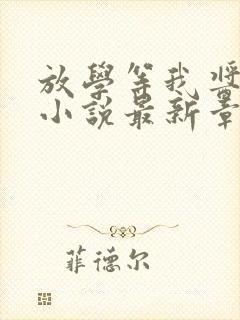 放學等我 將
小說最新章
菲德尔